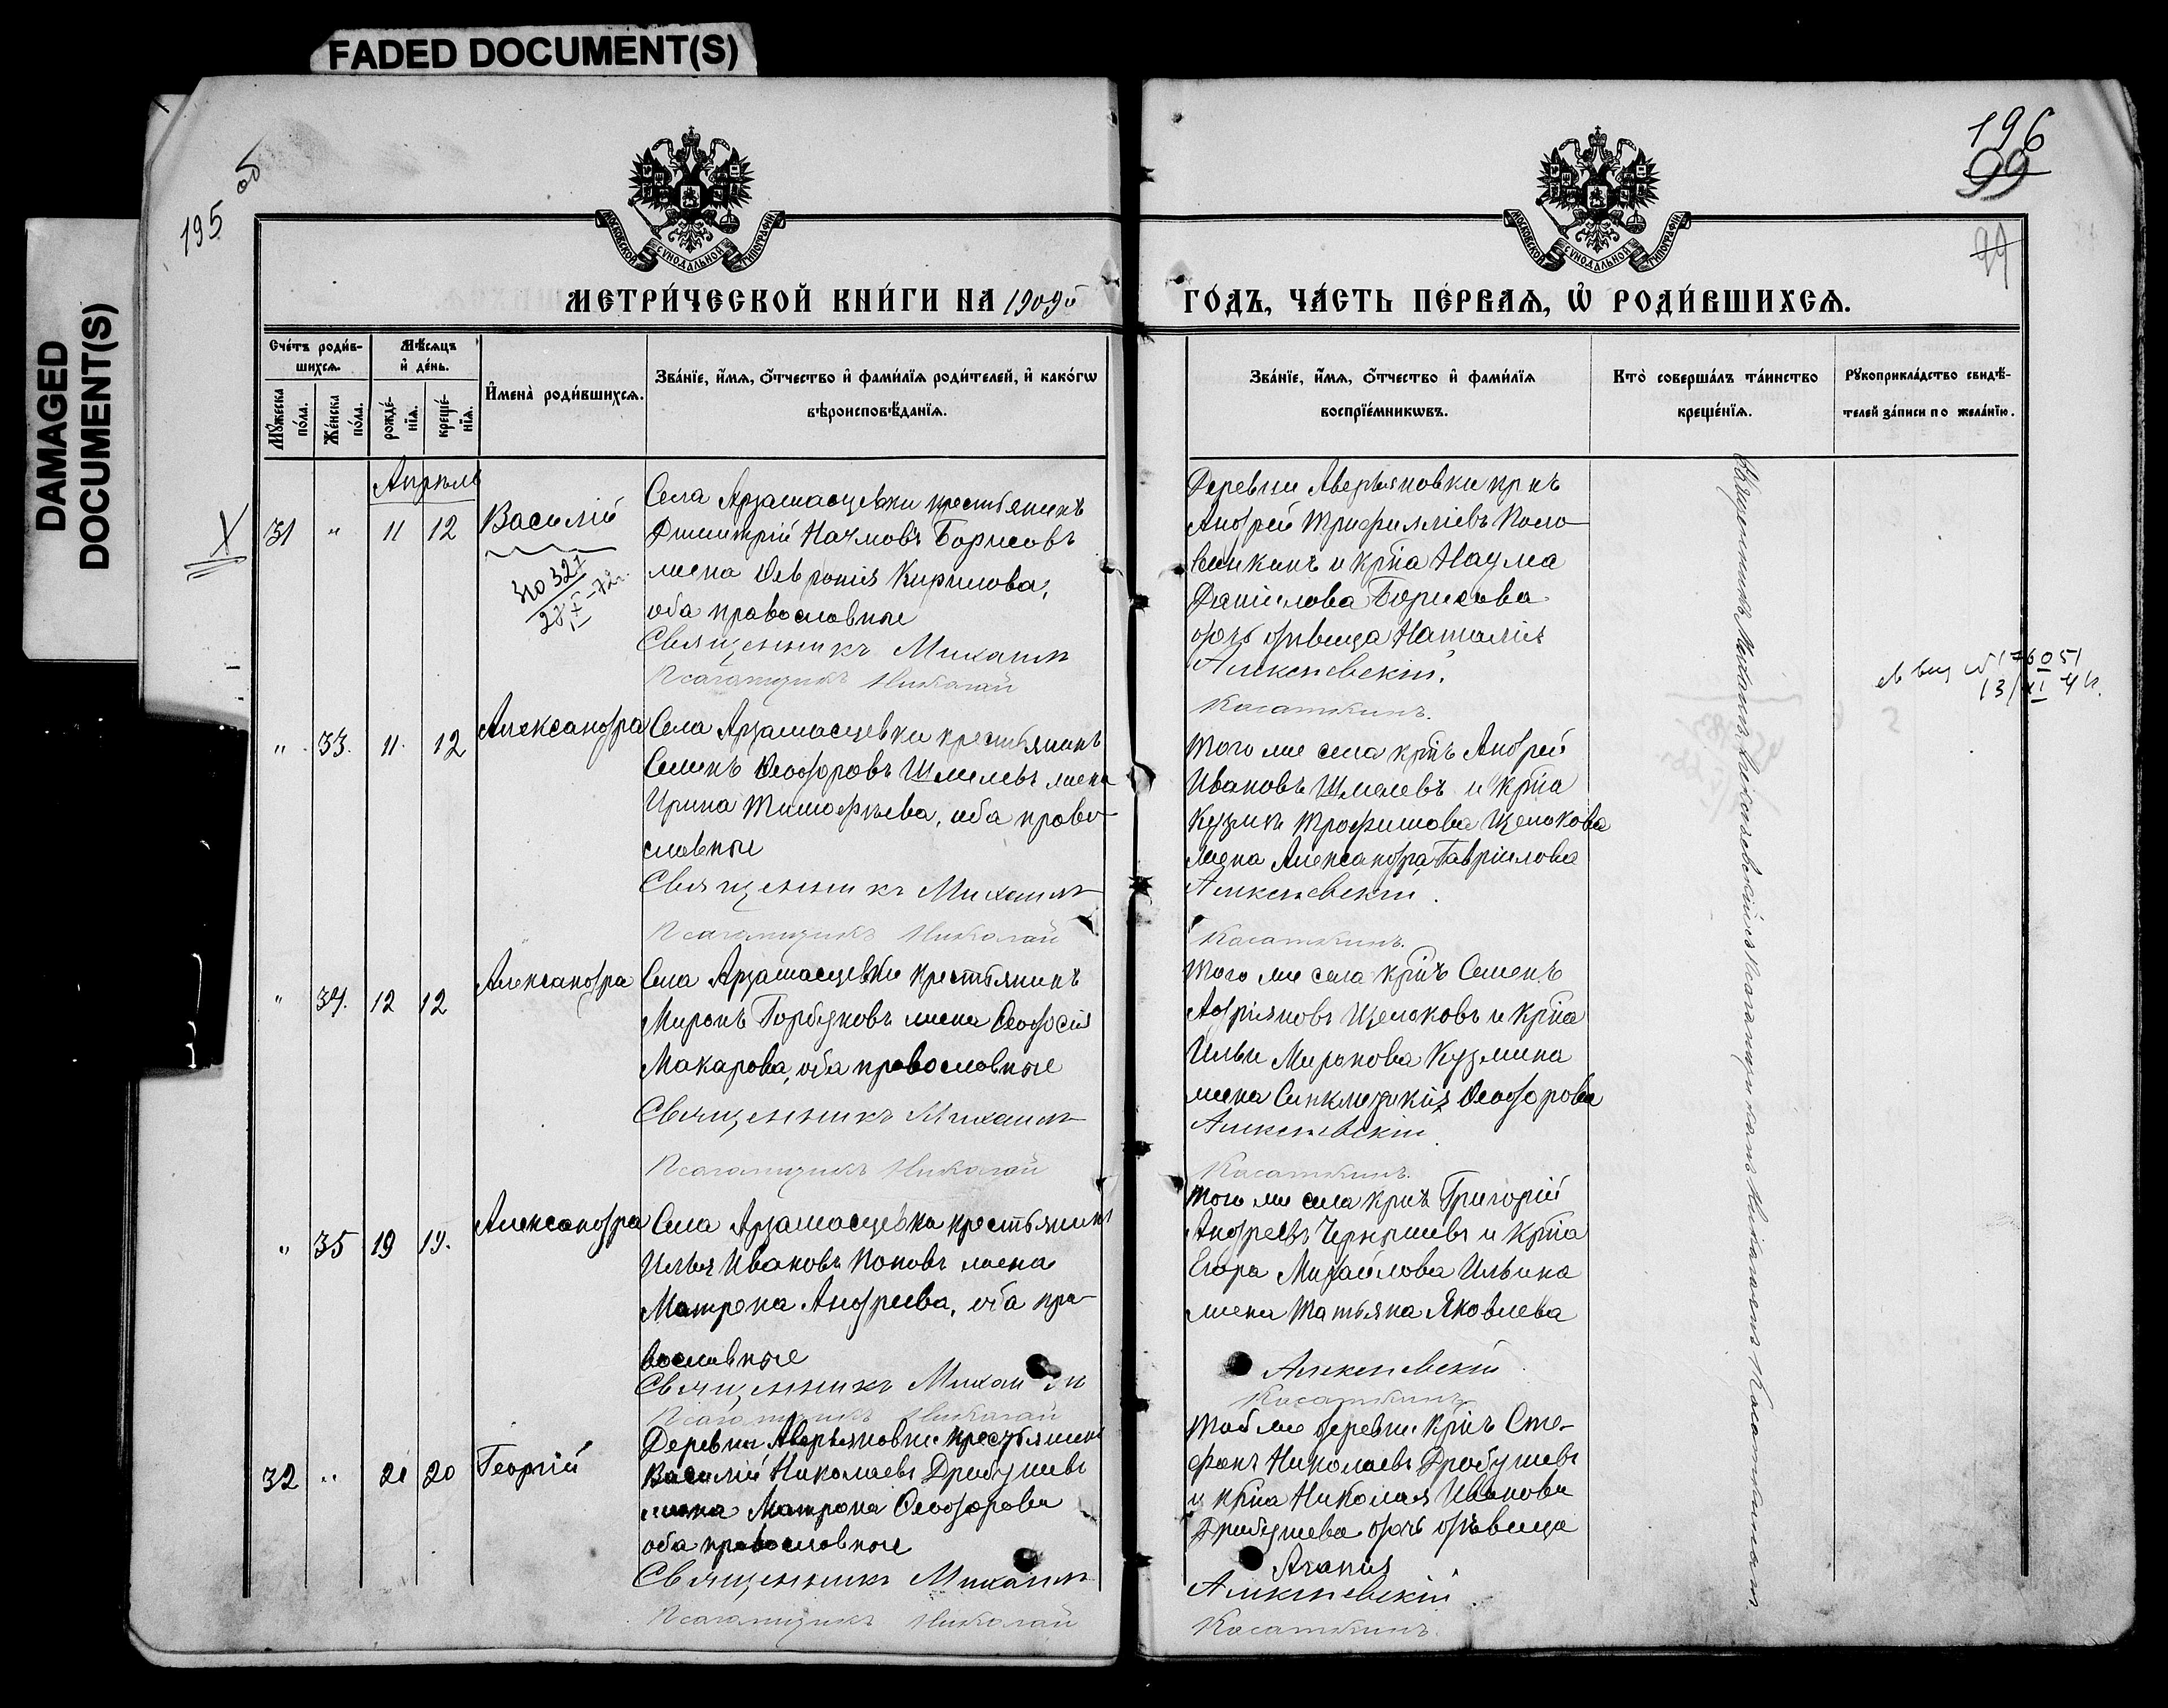 FADED DOCUMENT(S)
DAMAGED
DOCUMENT(S)
195
об
196
99
99
МОСКОВСКОЙ СѴНОДАЛЬНОЙ ТИПОГРАФІИ
МОСКОВСКОЙ СѴНОДАЛЬНОЙ ТИПОГРАФІИ
МЕТРИ́ЧЕСКОЙ КНИ́ГИ НА 1909й
ГО́ДЪ, ЧА́СТЬ ПЕ́РВАѦ, Ѿ РОДИ́ВШИХСѦ.
Сче́тъ роди́в-
шихсѧ.
Мꙋ́жеска
по́ла.
Же́нска
по́ла.
Мѣ́сѧцъ
и҆ де́нь.
рожде́-
нїѧ.
креще́-
нїѧ.
И҆мена̀ роди́вшихсѧ.
Зва́нїе, и҆́мѧ, ѻ҆́тчество и҆ фами́лїѧ роди́телей, и҆ како́гѡ
вѣроисповѣ́данїѧ.
Зва́нїе, и҆́мѧ, ѻ҆́тчество и҆ фами́лїѧ
воспрїе́мникѡвъ.
Кто̀ соверша́лъ та́инство
креще́нїѧ.
Рꙋкоприкла́дство свидѣ́-
телей за́писи по жела́нїю.
Апрѣль
X
31 " 11 12 Василій
Села Арзамасцевки крестьянинъ
Димитрій Наумовъ Борисовъ
жена Февронія Кирилова,
оба православные
Священникъ Михаилъ
Псаломщикъ Николай
Деревни Аверьяновки крнъ
Андрей Трифиллiевъ Поло-
винкинъ и крна Наума
Данилова Борисова
дочь дѣвица Наталія
Алексѣевскій.
Касаткинъ.
" 33. 11. 12 Александра
Села Арзамасцевки крестьянинъ
Семенъ Ѳеодоровъ Шмелевъ жена
Ирина Тимофѣева, оба право-
славные
Священникъ Михаилъ
Псаломщикъ Николай
Того же села крнъ Андрей
Ивановъ Шмелевъ и крна
Кузмы Трофимова Щелокова
жена Александра Гавріилова
Алексѣевскій.
Касаткинъ.
" 34. 12 12 Александра
Села Арзамасцевки крестьянинъ
Миронъ Горбуновъ жена Ѳеодосія
Макарова, оба православные
Священникъ Михаилъ
Псаломщикъ Николай
Того же села крнъ Семенъ
Адріяновъ Щелоковъ и крна
Ильи Миронова Кузмина
жена Синклитикія Ѳеодорова
Алексѣевскій.
Касаткинъ.
" 35 19 19. Александра
Села Арзамасцевка крестьянинъ
Илья Ивановъ Поповъ жена
Матрена Андреева, оба пра-
вославные
Священникъ Михаилъ
Псаломщикъ Николай
Того же села крнъ Григорій
Андреевъ Чернышевъ и крна
Егора Михайлова Ильина
жена Татьяна Яковлева
Алексѣевскій
Касаткинъ
32 " 20 20 Георгій
Деревни Аверьяновки крестьянинъ
Василій Николаевъ Дробушевъ
жена Матрона Ѳеодорова
оба православные
Священникъ Михаилъ
Псаломщикъ Николай
Той же деревни крнъ Сте-
фанъ Николаевъ Дробушевъ
и крна Николая Иванова
Дробушева дочь дѣвица
Агапія
Алексѣевскій
Касаткинъ.
Священникъ Михаилъ Алексѣевскій съ Псаломщикомъ Николаемъ Касаткинымъ